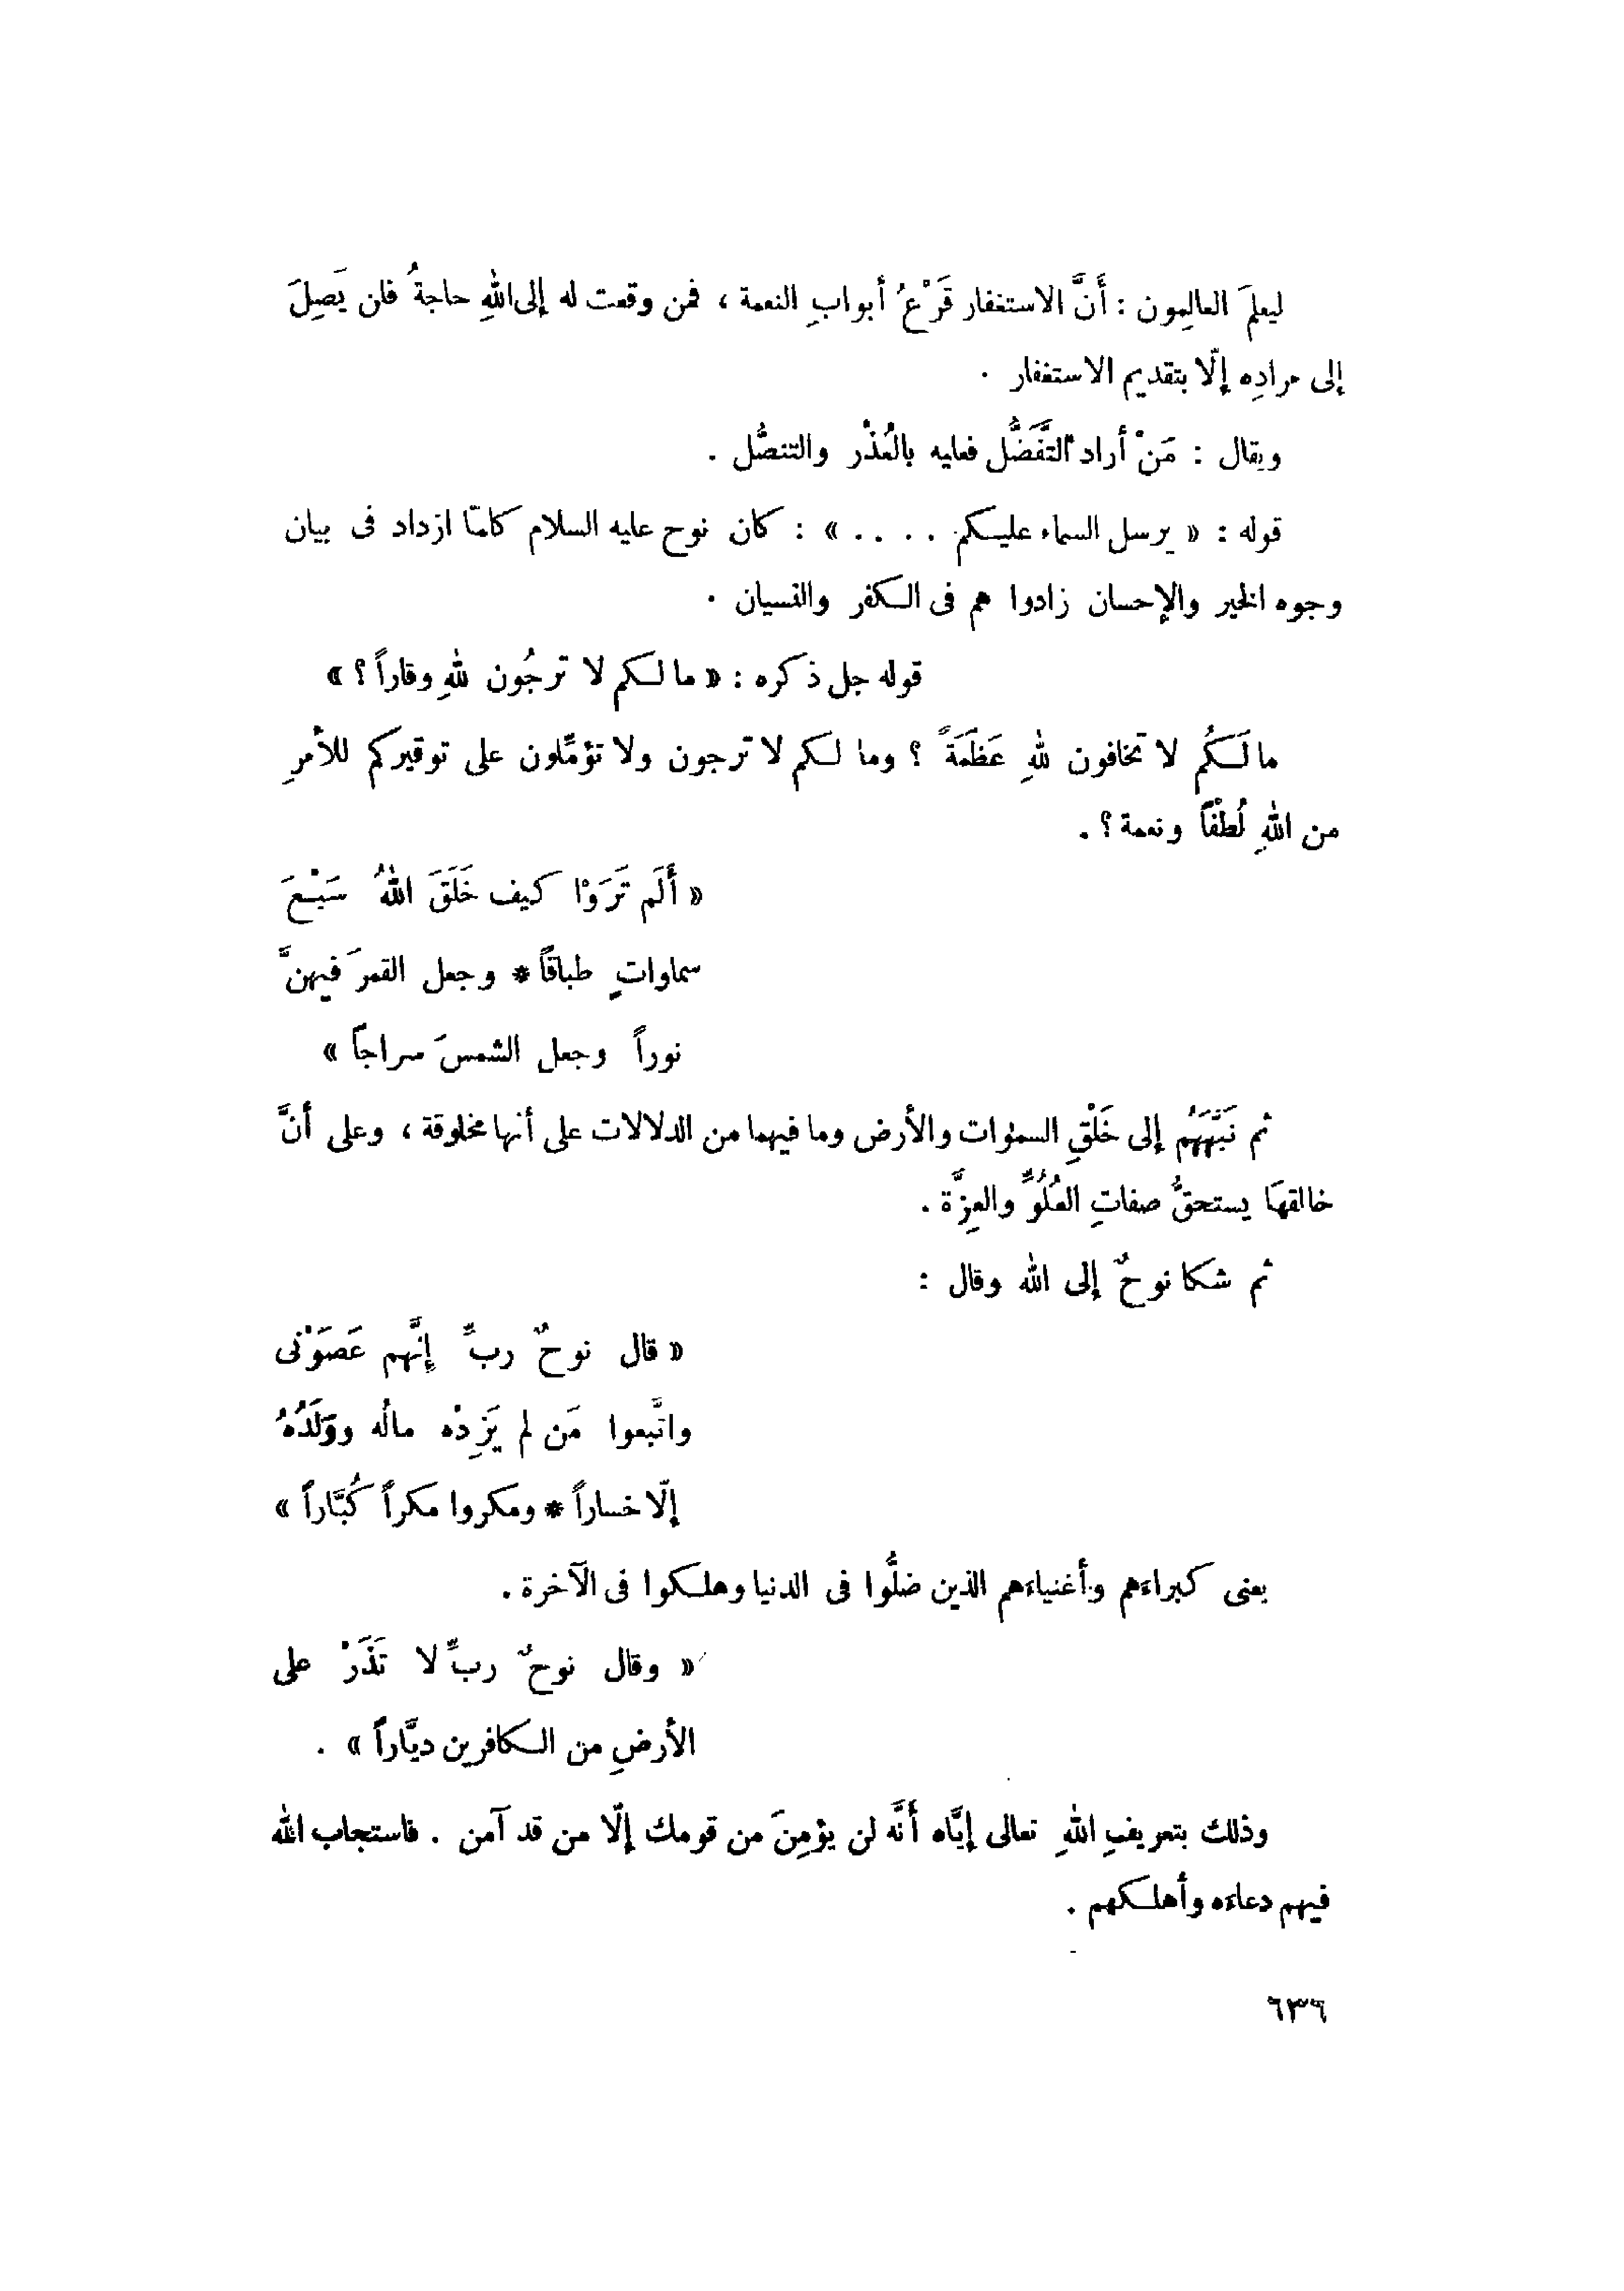 ليعلمَ العالِمون : أَنَّ الاستغفار قَرْعُ أبوابِ النعمة ، فمن وقعت له إلى اللهِ حاجةُ فلن يَصِلَ
إلى مرادِه إلّا بتقديم الاستغفار .
ويقال : مَنْ أراد التَّفَضُّل فعليه بالعُذْر والتنصُّل .
قوله : « يرسل السماء عليكم . . . . » : كان نوح عليه السلام كلمّا ازداد فى بيان
وجوه الخير والإحسان زادوا هم فى الكفر والنسيان .
قوله جل ذكره : « ما لكم لا ترجُون للهِ وقاراً ؟ »
ما لَكُم لا تخافون للهِ عَظَمَةً ؟ وما لكم لا ترجون ولا تؤمِّلون على توقيركم للأمرِ
من اللهِ لُطْفاً ونعمة ؟ .
« أَلَم تَرَوْا كيف خَلَقَ اللهُ سَبْعَ
سماواتٍ طباقاً * وجعل القمرَ فيهنَّ
نوراً وجعل الشمسَ سراجاً »
ثم نَبَّهَهُم إلى خَلْقِ السمٰوات والأرض وما فيهما من الدلالات على أنها مخلوقة ، وعلى أنَّ
خالقهَا يستحقُّ صفاتِ العُلُوِّ والعِزَّة .
ثم شكا نوحٌ إلى الله وقال :
« قال نوحٌ ربِّ إنَّهم عَصَوْنى
واتَّبعوا مَن لم يَزِدْه مالُه ووَلَدُهُ
إلّا خساراً * ومكروا مكراً كُبَّاراً »
يعنى كبراءَهم وأغنياءَهم الذين ضلُّوا فى الدنيا وهلكوا فى الآخرة .
« وقال نوحٌ ربِّ لا تَذَرْ على
الأرضِ من الكافرين ديَّاراً » .
وذلك بتعريفِ اللهِ تعالى إيَّاه أَنَّه لن يؤمِنَ من قومك إلّا من قد آمن . فاستجاب الله
فيهم دعاءَه وأهلكهم .
٦٣٦